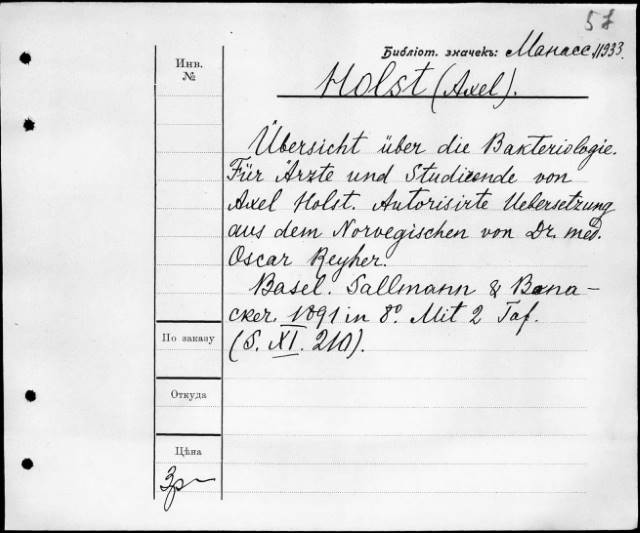 57
Библіот. значекъ: Манасс. 11933.
Инв.
№
Holst (Axel).
Übersicht über die Bakteriologie.
Für Ärzte und Studirende von
Axel Holst. Autorisirte Uebersetzung
aus dem Norvegischen von Dr. med.
Oscar Reyher.
Basel. Sallmann & Bona-
cker. 1891 in 8°. Mit 2 Taf.
(S. XI. 210).
По заказу
Откуда
Цѣна
3р—